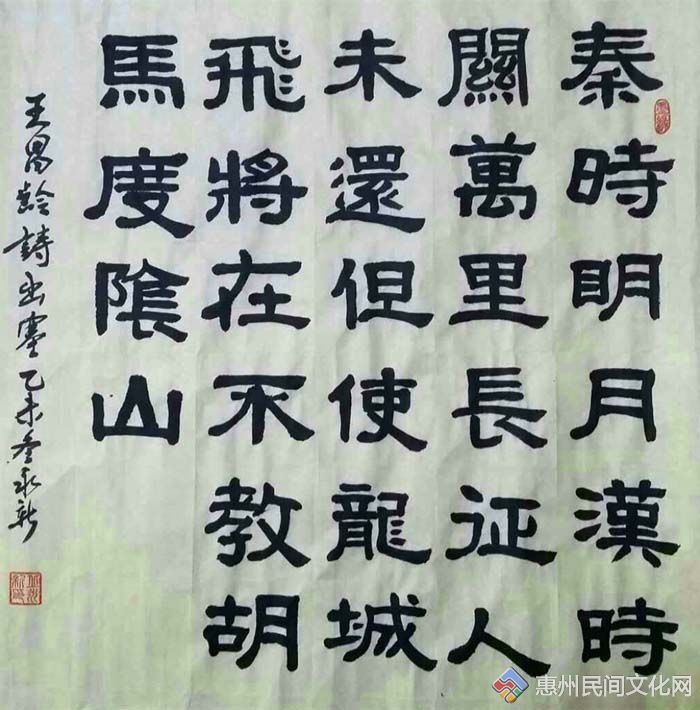 秦時明月漢時
關萬里長征人
未還但使龍城
飛將在不教胡
馬度陰山
王昌齡詩出塞乙未冬永新
惠州民间文化网